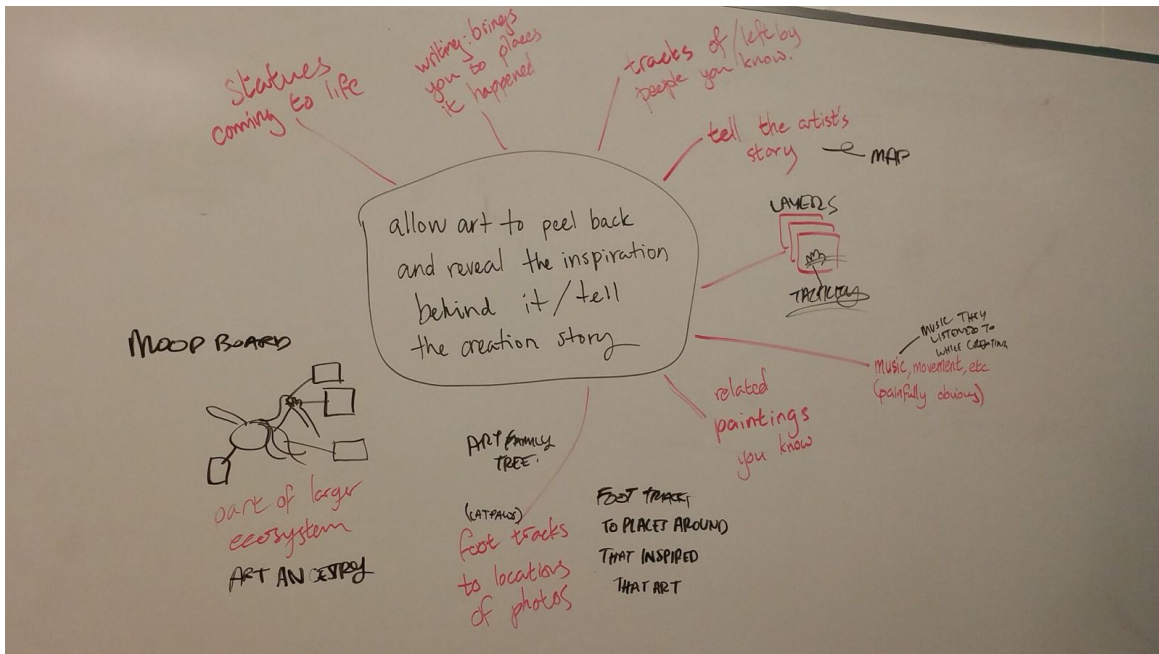 statues
coming to life
writing: brings
you to places
it happened
tracks of/left by
people you/know.
tell the artist's
story
MAP
LAYERS
TACTILITY
allow art to peel back
and reveal the inspiration
behind it/tell
the creation story
MUSIC THEY
LISTENED TO
WHILE CREATING
music, movement, etc
(painfully obvious)
related
paintings
you know
MOOD BOARD
part of larger
ecosystem
ART ANCESTRY
ART FAMILY
TREE.
(CATPAWS)
foot tracks
to locations
of photos
FOOT TRACKS
TO PLACES AROUND
THAT INSPIRED
THAT ART